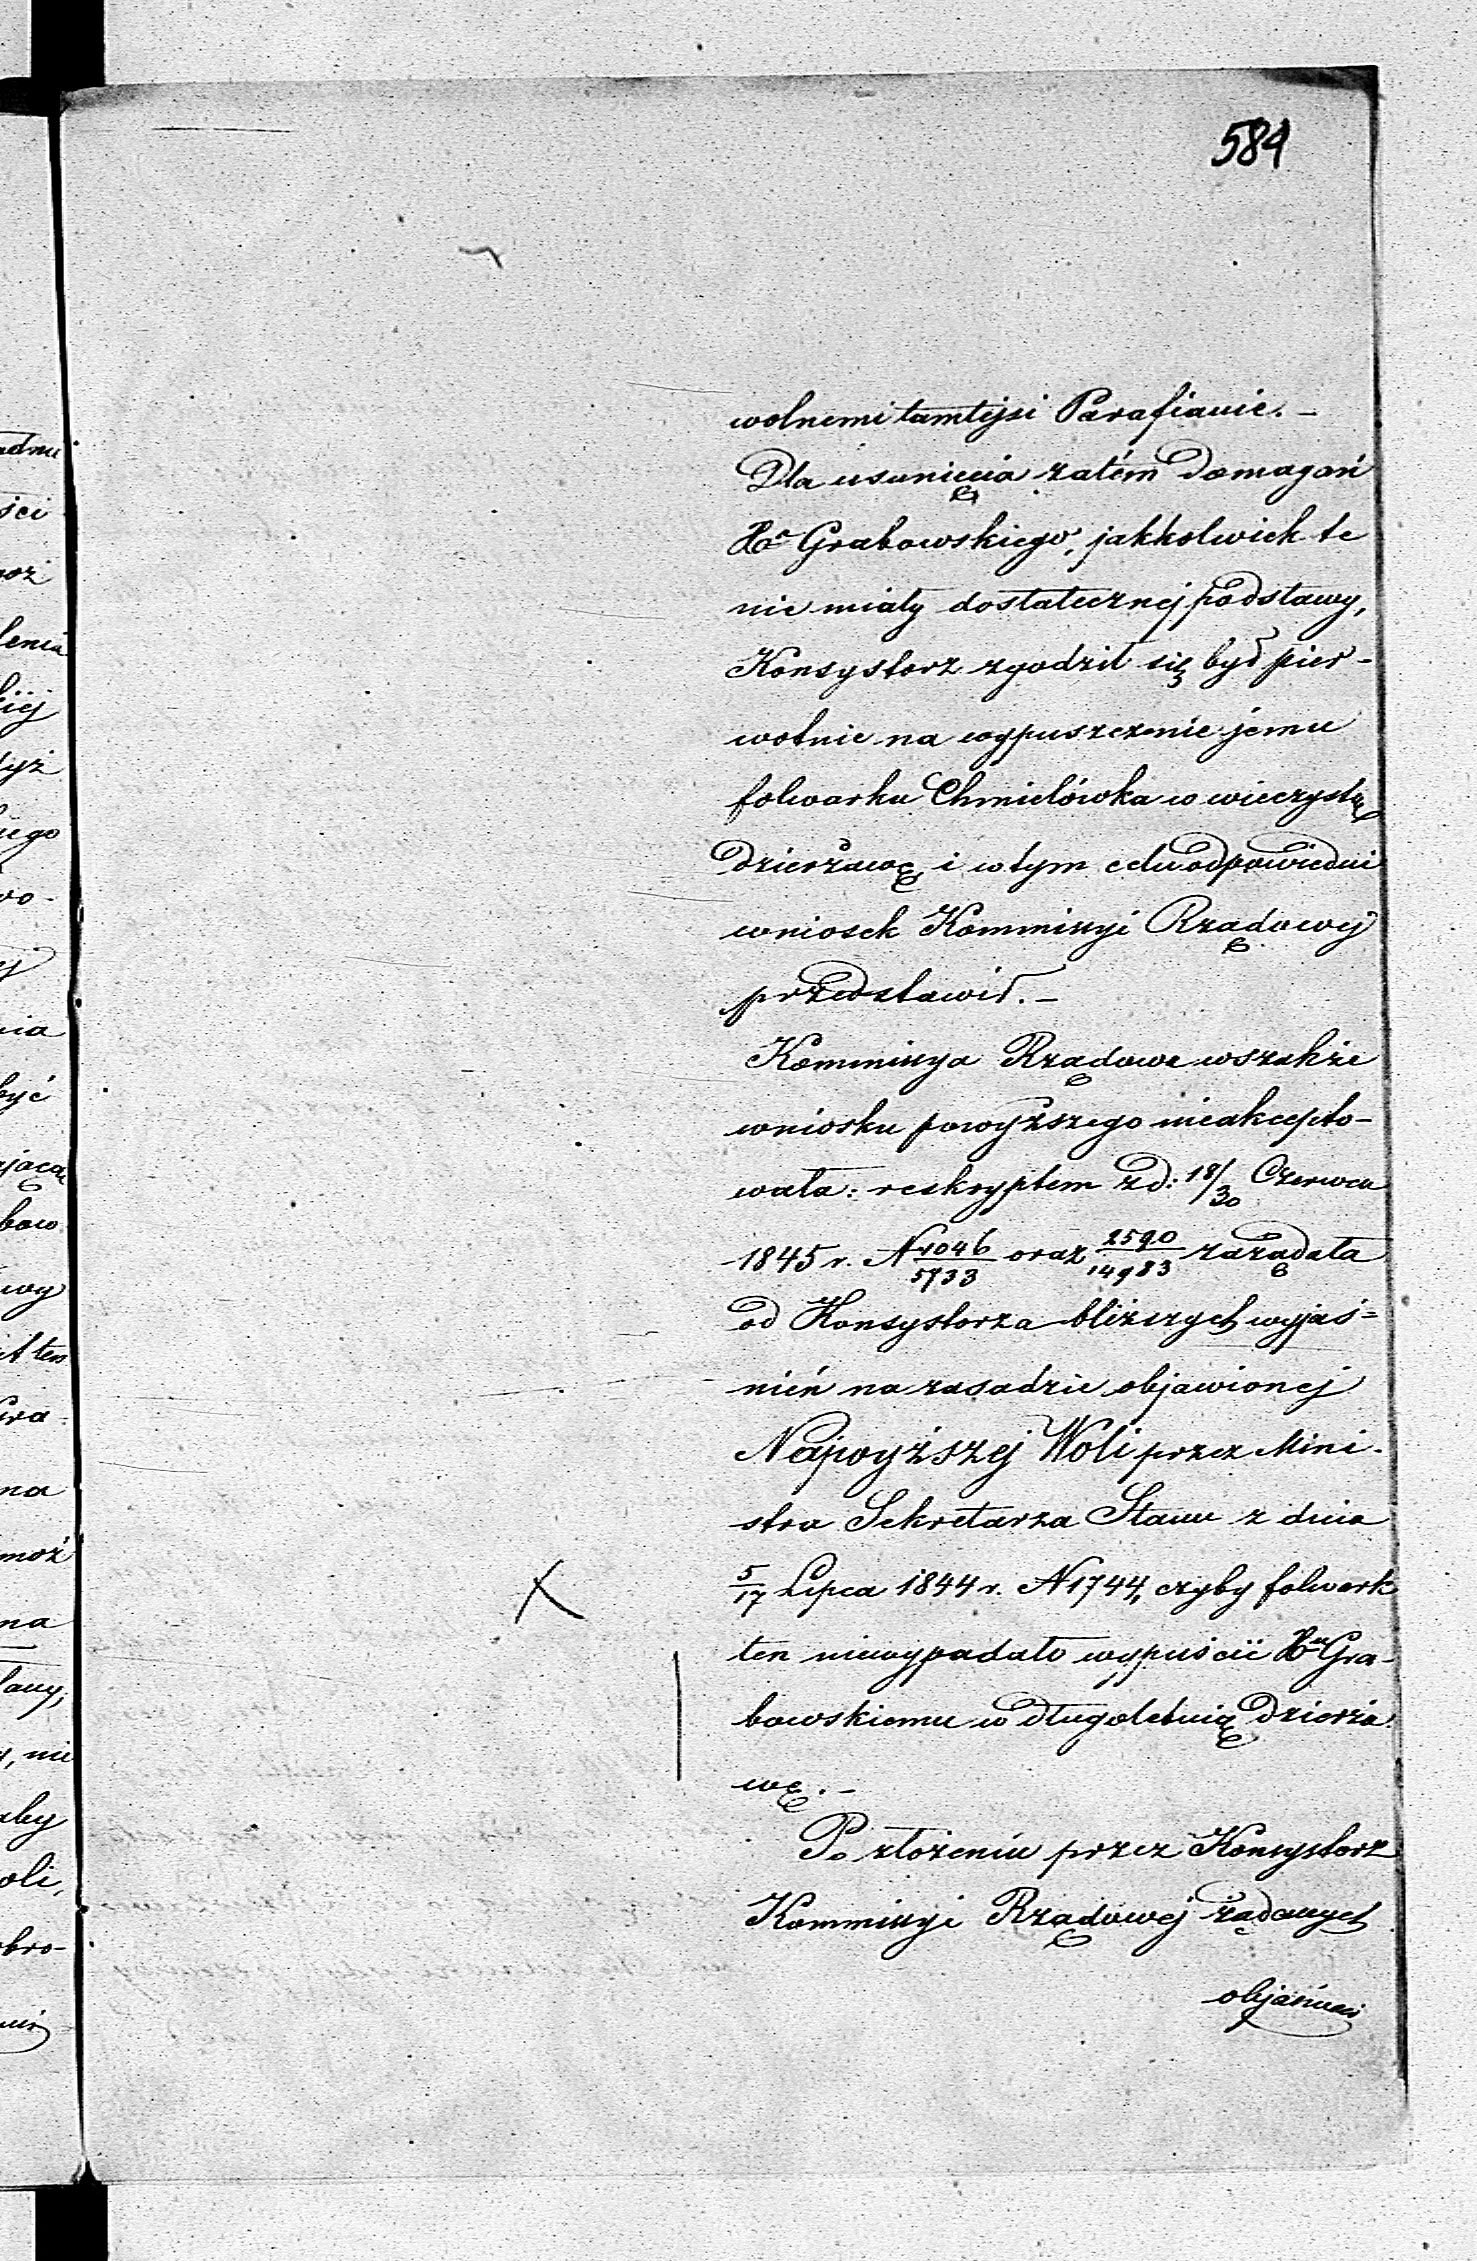 584
wolnemi tamtejsi Parafianie. –
Dla usunięcia zatém domagań
Hr Grabowskiego, jakkolwiek te
nie miały dostatecznej podstawy,
Konsystorz zgodził się był pier-
wotnie na wypuszczenie jemu
folwarku Chmielówka w wieczystą
dzierżawę i w tym celu odpowiedni
wniosek Kommissyi Rządowej
przedstawił. –
Kommissya Rządowa wszakże
wniosku powyższego nieakcepto-
wała: reskryptem z d: 18/30 Czerwca
1845 r. N 1046/5733 oraz 2590/14983 zażądała
od Konsystorza bliższych wyjaś=
nień na zasadzie objawionej
Najwyższej Woli przez Mini-
stra Sekretarza Stanu z dnia
5/17 Lipca 1844 r. N 1744, czyby folwark
ten niewypadało wypuścić Hru Gra-
bowskiemu w długoletnią dzierża-
wę. –
Po złożeniu przez Konsystorz
Kommissyi Rządowej żądanych
objaśnień